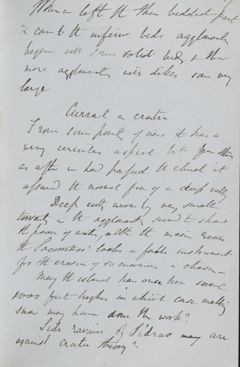 When we left the then bedded part
& came to the inferior beds agglomerate
began with some solid beds, & then
more agglomerate with dikes some very
large
Curral a crater
From some points of view it has a
very circular aspect but from others
as after we had passed the church it
assumed the normal form of a deep valley
Deep cuts worn by very small
torrents in the agglomerate seemed to show
the power of water, altho the main river
the Soccorridos looks a feeble instrument
for the erosion of so enormous a chasm
May the island have once been several
1000 feet higher in which case melting
snow may have done the work?
Side ravines of Sidrao may are
against crater theory?